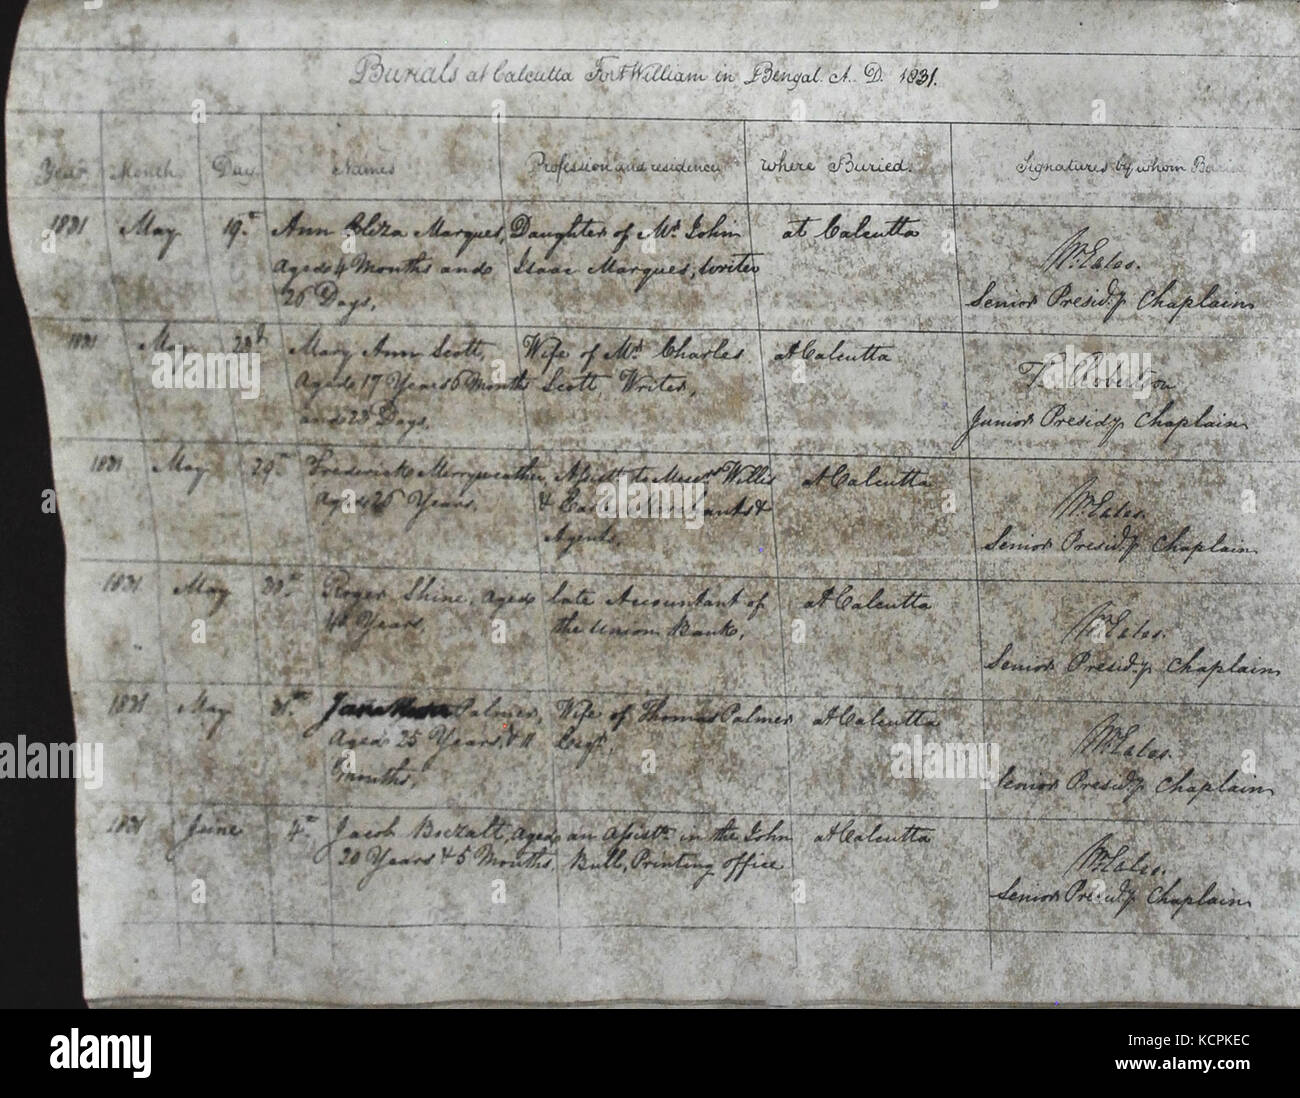 Burials at Calcutta Fort William in Bengal. A. D. 1831.
Year Month Day Names Profession and residency where Buried. Signatures by whom
1831 May 19th Ann Eliza Marques, Daughter of Mr. John at Calcutta
aged 4 Months and Isaac Marques, writer Wm Eales.
26 Days, Senior Presidy. Chaplain
1831 May Mary Ann Scott, Wife of Mr. Charles at Calcutta
aged 17 Years 6 Months Scott, Writer, Ts. Robertson
and 23 Days, Junior Presidy. Chaplain
1831 May 29th Frederick Merryweather, Assist. to Messrs Willis at Calcutta
aged 26 Years. & Merchants & Wm Eales.
Agents, Senior Presidy. Chaplain
1831 May Roger Shine, aged late Accountant of at Calcutta
Years, the Union Bank, Wm Eales.
Senior Presidy. Chaplain
1831 May 31st Jane Palmer, Wife of Thomas Palmer at Calcutta
aged 25 Years & 11 Esqr. Wm Eales.
months, Senior Presidy. Chaplain
1831 June 4th Jacob Boezalt, aged an Assistt. in the John at Calcutta
20 Years & 5 Months. Bull, Printing office Wm Eales.
Senior Presidy. Chaplain
alamy
alamy stock photo
KCPKEC
www.alamy.com